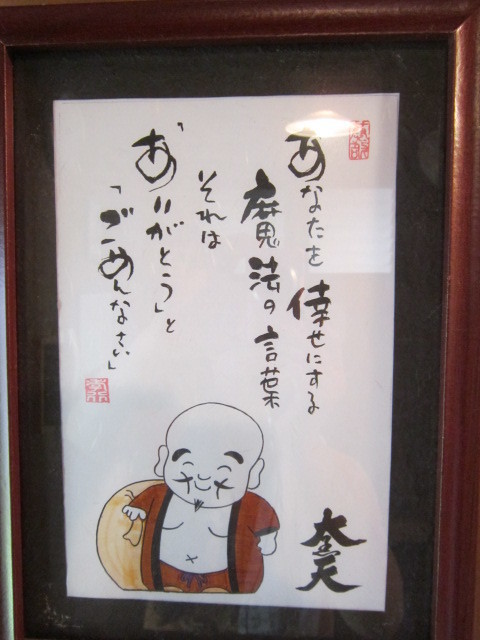 あなたを倖せにする
魔法の言葉
それは
「ありがとう」と
「ごめんなさい」